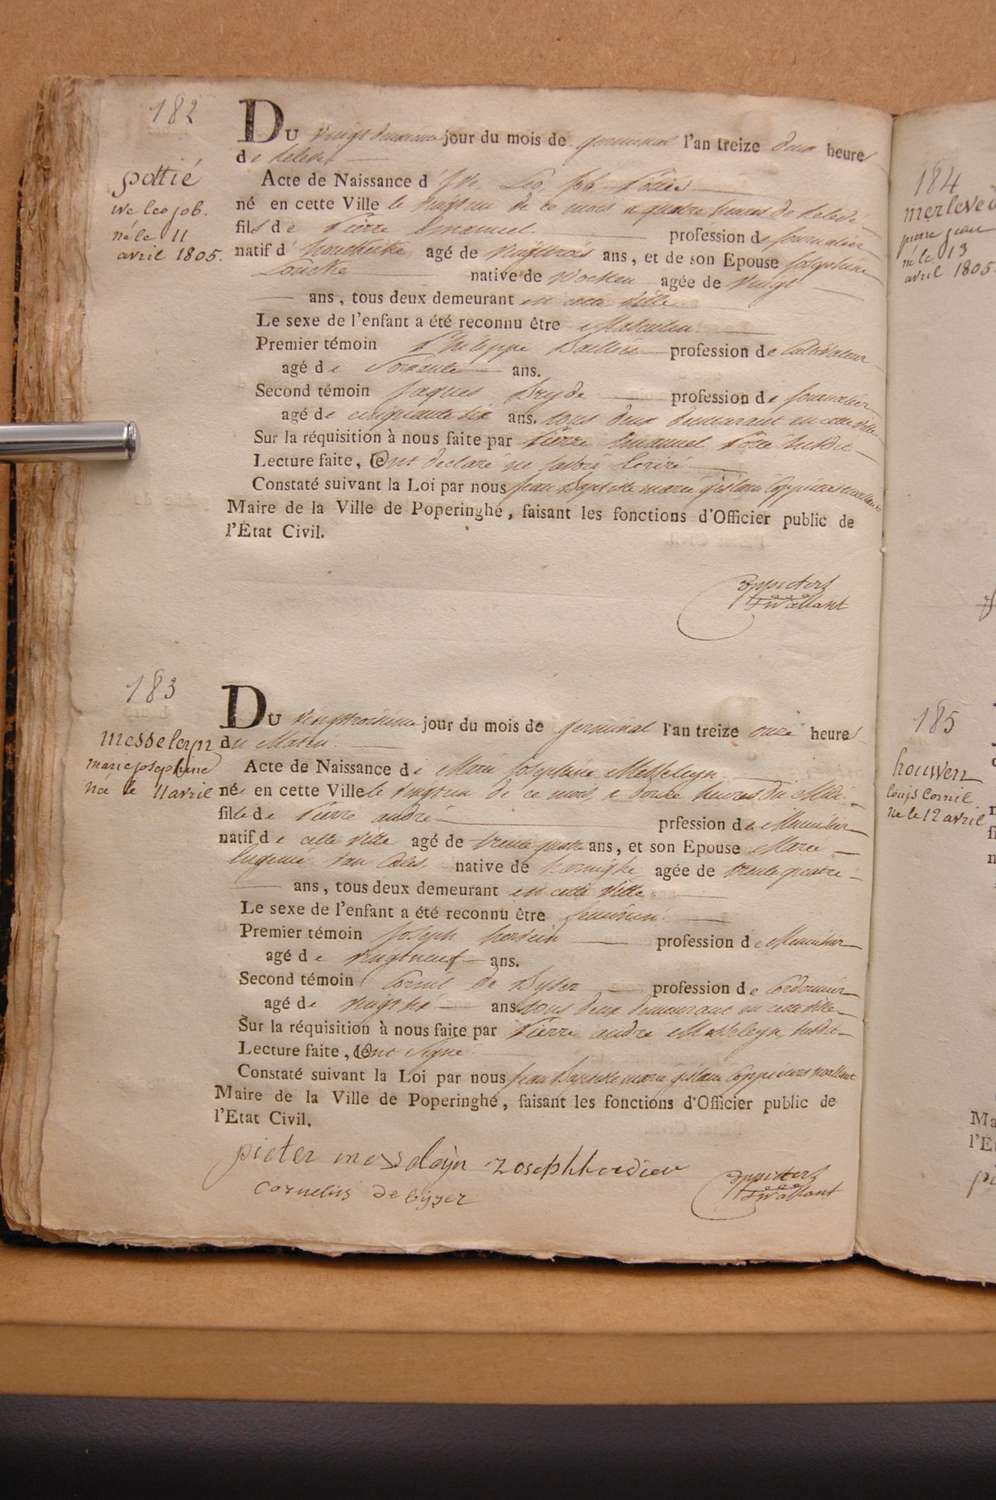 182
pattié
ive leo job.
né le 11
avril 1805.
Du vingt deuxieme jour du mois de germinal l'an treize deux heures
de Relevée
Acte de Naissance d' Yve Leo Job Pattié
né en cette Ville le vingt un de ce mois a quatre heures de Relevée
fils de Pierre Emanuel profession de Journalier
natif d' agé de vingt trois ans, et de son Epouse Josephine
native de agée de vingt
ans, tous deux demeurant en cette ville
Le sexe de l'enfant a été reconnu être Masculin
Premier témoin Philippe profession de Cultivateur
agé de Soixante ans.
Second témoin Jaques profession de Journalier
agé de cinquante six ans. tous deux demeurant en cette ville
Sur la réquisition à nous faite par Pierre Emanuel
Lecture faite, ont declaré ne savoir Ecrire
Constaté suivant la Loi par nous Jean Baptiste marie gislain
Maire de la Ville de Poperinghé, faisant les fonctions d'Officier public de
l'État Civil.
183
messeleyn
marie josephine
née le 11 avril
Du vingt troisieme jour du mois de germinal l'an treize onze heures
du Matin
Acte de Naissance de Marie Josephine Messeleyn
née en cette Ville le vingt un de ce mois a douze heures du Midi
fille de Pierre andré prfession de Menuisier
natif de cette ville agé de trente quatre ans, et son Epouse Marie
Eugenie native de agée de trente quatre
ans, tous deux demeurant en cette ville
Le sexe de l'enfant a été reconnu être feminin
Premier témoin Joseph profession de Menuisier
agé de vingt neuf ans.
Second témoin Cornil de profession de Cordonnier
agé de ans. tous deux demeurant en cette ville
Sur la réquisition à nous faite par Pierre andre Messeleyn
Lecture faite, ont signé
Constaté suivant la Loi par nous Jean Baptiste marie gislain
Maire de la Ville de Poperinghé, faisant les fonctions d'Officier public de
l'Etat Civil.
pieter messeleijn
cornelius
184
merleved
pierre jean
né le 13
avril 1805
185
houwen
louis Cornil
né le 12 avril
Ma
l'É